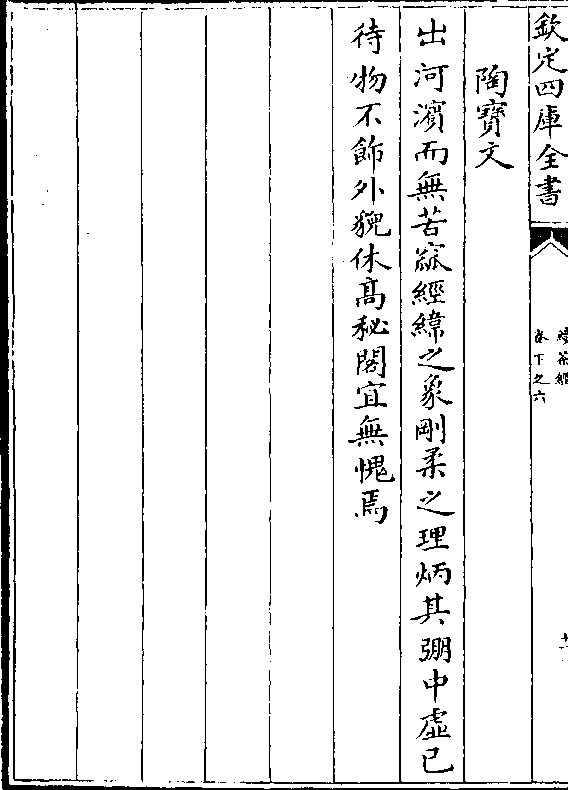 欽定四庫全書
續茶經
卷下之六
陶寶文
出河濱而無苦窳經緯之象剛柔之理炳其弸中虛已
待物不飾外貌休髙秘閣宜無愧焉